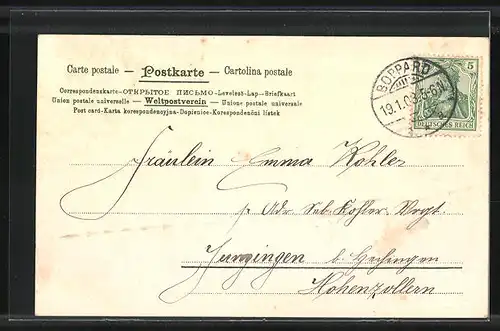 Carte postale – Postkarte – Cartolina postale
Correspondenzkarte-ОТКРЫТОЕ ПИСЬМО-Levelező-Lap-Briefkaart
Union postale universelle – Weltpostverein – Unione postale universale
Post card-Karta korespondencyjna-Dopisnice-Korespondenční lístek
BOPPARD
19.1.03.5-6N.
5
DEUTSCHES REICH
Fräulein Emma Kohler
p. Adr. Seb. Kohler Vogt.
Jungingen b. Hechingen
Hohenzollern